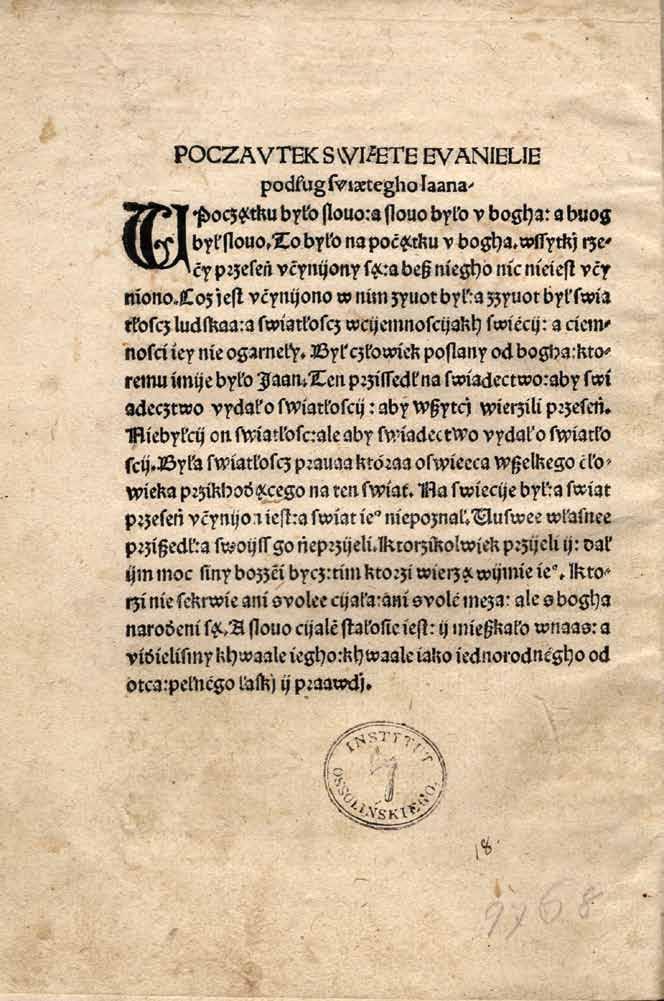 POCZAVTEK SVVIÆTE EVANIELIE
podług ſvıxtegho Iaana
W Poczꝗtku było ſlovo: a ſlovo było v bogha: a buog
był ſlovo. To było na počꝗtku v bogha. wſſytkj rze-
čy przeſeń včynijony ſꝗ: a beß niegho nic nieieſt včy
niono. Coz jeſt včynijono w nim zyuot był: a zzyuot był ſwia
tłoſcz ludſkaa: a ſwiatłoſcz wcijemnoſcijakh ſwiécij: a ciem-
noſci iey nie ogarneły. Był człowiek poslany od bogha: kto-
remu imije było Jaan. Ten prziſſedł na ſwiadectwo: aby ſwi
adecztwo vydał o ſwiatłoſcij: aby wßytcj wierzili przeſeń.
Niebyłcij on ſwiatłoſc: ale aby ſwiadectwo vydał o ſwiatło
ſcij. Była ſwiatłoſcz pravaa któraa oſwieeca wßelkego čło-
wieka przikhodꝗcego na ten ſwiat. Na ſwiecije był: a ſwiat
przeſeń včynijon ieſt: a ſwiat ieº niepoznał. Uuſwee właſnee
przißedł: a ſwoijſſ go ńeprzijeli. Ktorzikolwjek przijeli ij: dał
ijm moc ſiny bozzēi bycz: tim ktorzi wierzꝗ wijmie ieº. Kto-
rzi nie ſekrwie ani svolee cijała: ani svolé meza: ale s bogha
narodeni ſꝗ. A ſlovo cijalē ſtałoſic ieſt: ij mießkało wnaas: a
vidieliſmy khwaale iegho: khwaale iako iednorodnégho od
otca: pełnégo łaſkj ij praawdj.
INSTITUT
OSSOLIŃSKIEGO.
18.
9768